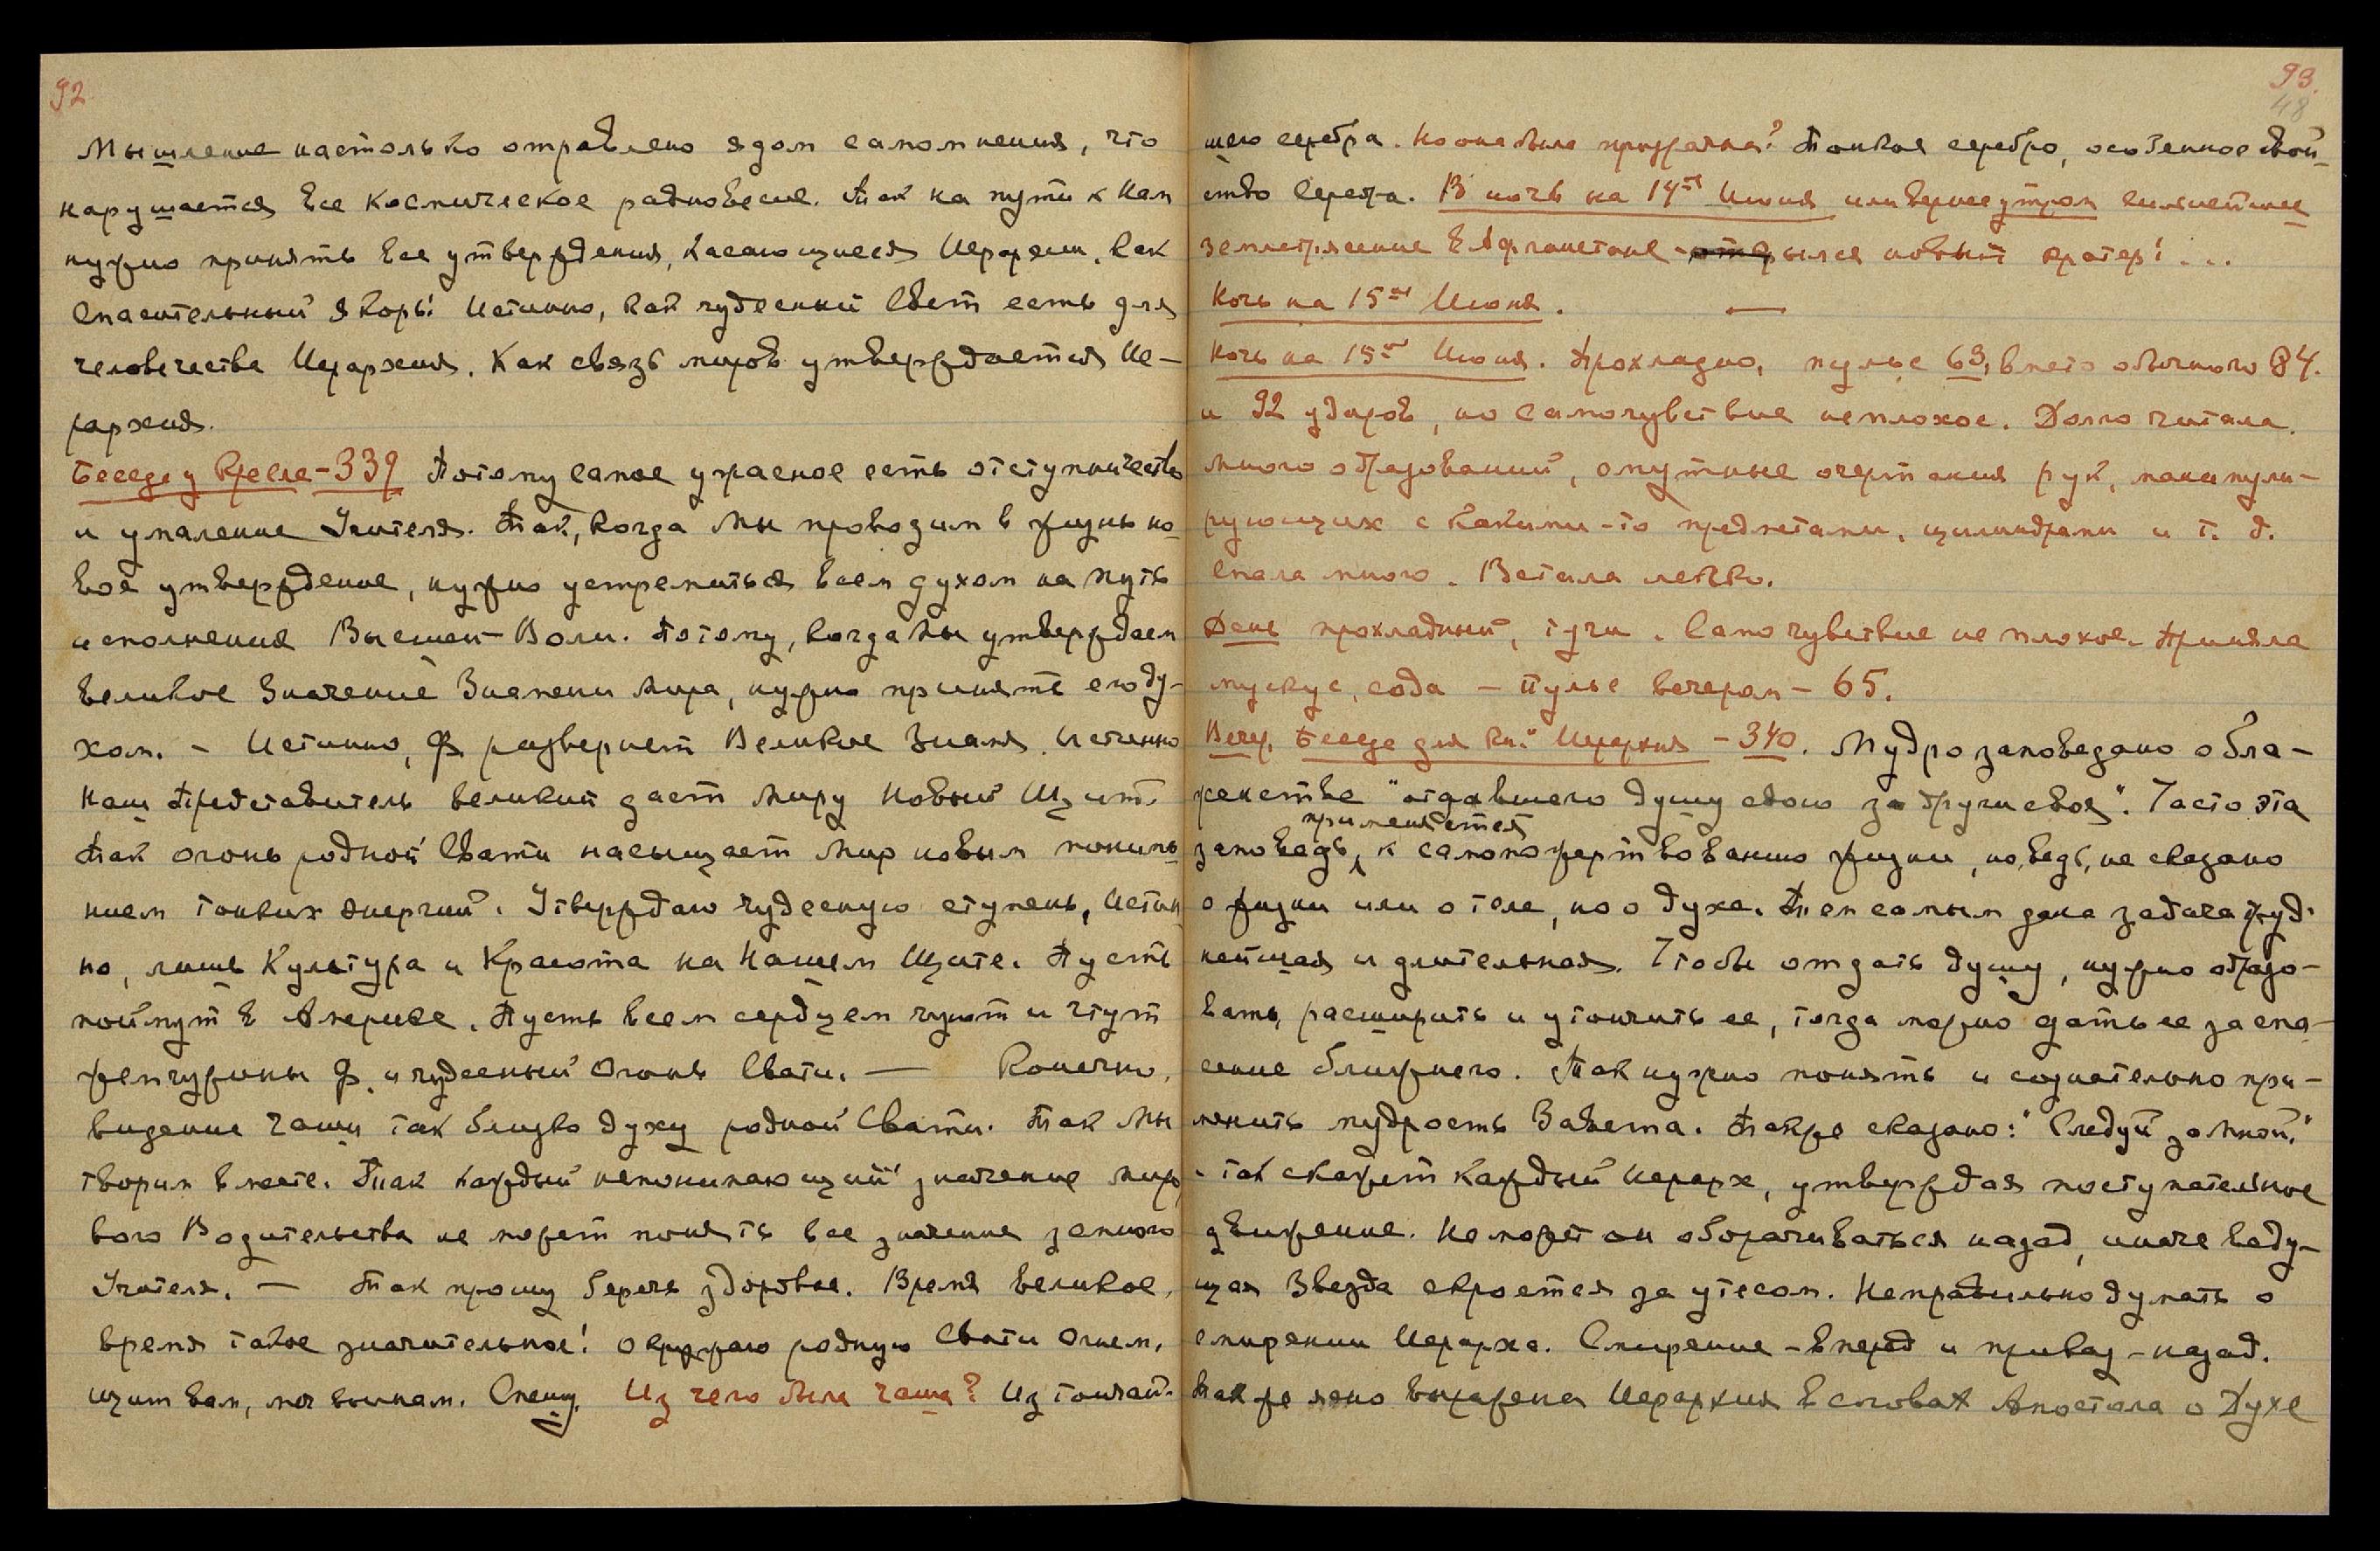 92
Мышление настолько отравлено ядом самомнения, что
нарушается все космическое равновесие. Так на пути к Нам
нужно принять все утверждения, касающиеся Иерархии, как
спасительный якорь! Истинно, как чудесный Свет есть для
человечества Иерархия. Как связь миров утверждается Ие-
рархия.
Беседа у Кресла - 339 Потому самое ужасное есть отступничество
и умаление Учителя. Так, когда Мы проводим в жизнь но
вое утверждение, нужно устремиться всем духом на путь
исполнения Высшей Воли. Потому, когда Мы утверждаем
великое Значение Знамени Мира, нужно принять его ду-
хом. - Истинно, Ф. развернет Великое Знамя. Истинно
Наш Представитель великий дает Миру Новый Щит.
Так огонь родной Свати насыщает Мир новым понима
нием тонких энергий. Утверждаю чудесную ступень, Истин
но, лишь Культура и Красота на Нашем Щите. Пусть
поймут в Америке. Пусть всем сердцем чуют и чтут
жемчужины Ф. и чудесный Огонь Свати. — Конечно,
видение чаши так близко духу родной Свати. Так Мы
творим вместе. Так каждый непонимающий значение миро
вого Водительства не может понять все значение земного
Учителя. — Так прошу беречь здоровье. Время великое,
время такое значительное! Окружаю родную Свати Огнем.
Щит вам, мои воинам. Спешу. Из чего была чаша? Из тончай-
93.
48
шего серебра. Но она была прозрачна? Тонкая серебро, особенное свой-
ство Серебра. В ночь на 14ое Июня или вернее утром сильнейшее
землетрясение в Афганистане - открылся новый кратер! ...
Ночь на 15ое Июня. —
Ночь на 15ое Июня. Прохладно, пульс 63, вместо обычного 84.
и 92 ударов, но самочувствие неплохое. Долго читала.
Много образований, смутные очертания рук, манипули-
рующих с какими-то предметами, цилиндрами и т. д.
Спала много. Встала легко.
День прохладный, тучи. Самочувствие не плохое. Приняла
мускус, сода - Пульс вечером - 65.
Вечер. Беседа для кн." Иерархия - 340. Мудро заповедано о бла-
женстве "отдавшего душу свою за други своя". Часто эта
заповедь применяется к самопожертвованию жизни, но, ведь, не сказано
о жизни или о теле, но о духе. Тем самым дана задача труд-
нейшая и длительная. Чтобы отдать душу, нужно образо-
вать, расширить и утончить ее, тогда можно дать ее за спа-
сение ближнего. Так нужно понять и сознательно при-
менить мудрость Завета. Также сказано: "Следуй за Мной."
- так скажет каждый Иерарх, утверждая поступательное
движение. Не может он оборачиваться назад, иначе веду-
щая Звезда скроется за утесом. Неправильно думать о
смирении Иерарха. Смирение - вперед и приказ - назад.
Также ясно выражена Иерархия в словах Апостола о Духе